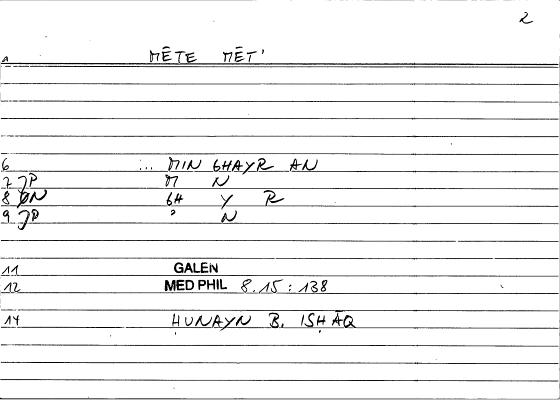 2
A MĒTE MĒT'
6 ... MIN GHAYR AN
7 JP M N
8 ON GH Y R
9 JP ' N
11 GALEN
12 MED PHIL 8.15 : 138
14 ḤUNAYN B. ISḤĀQ